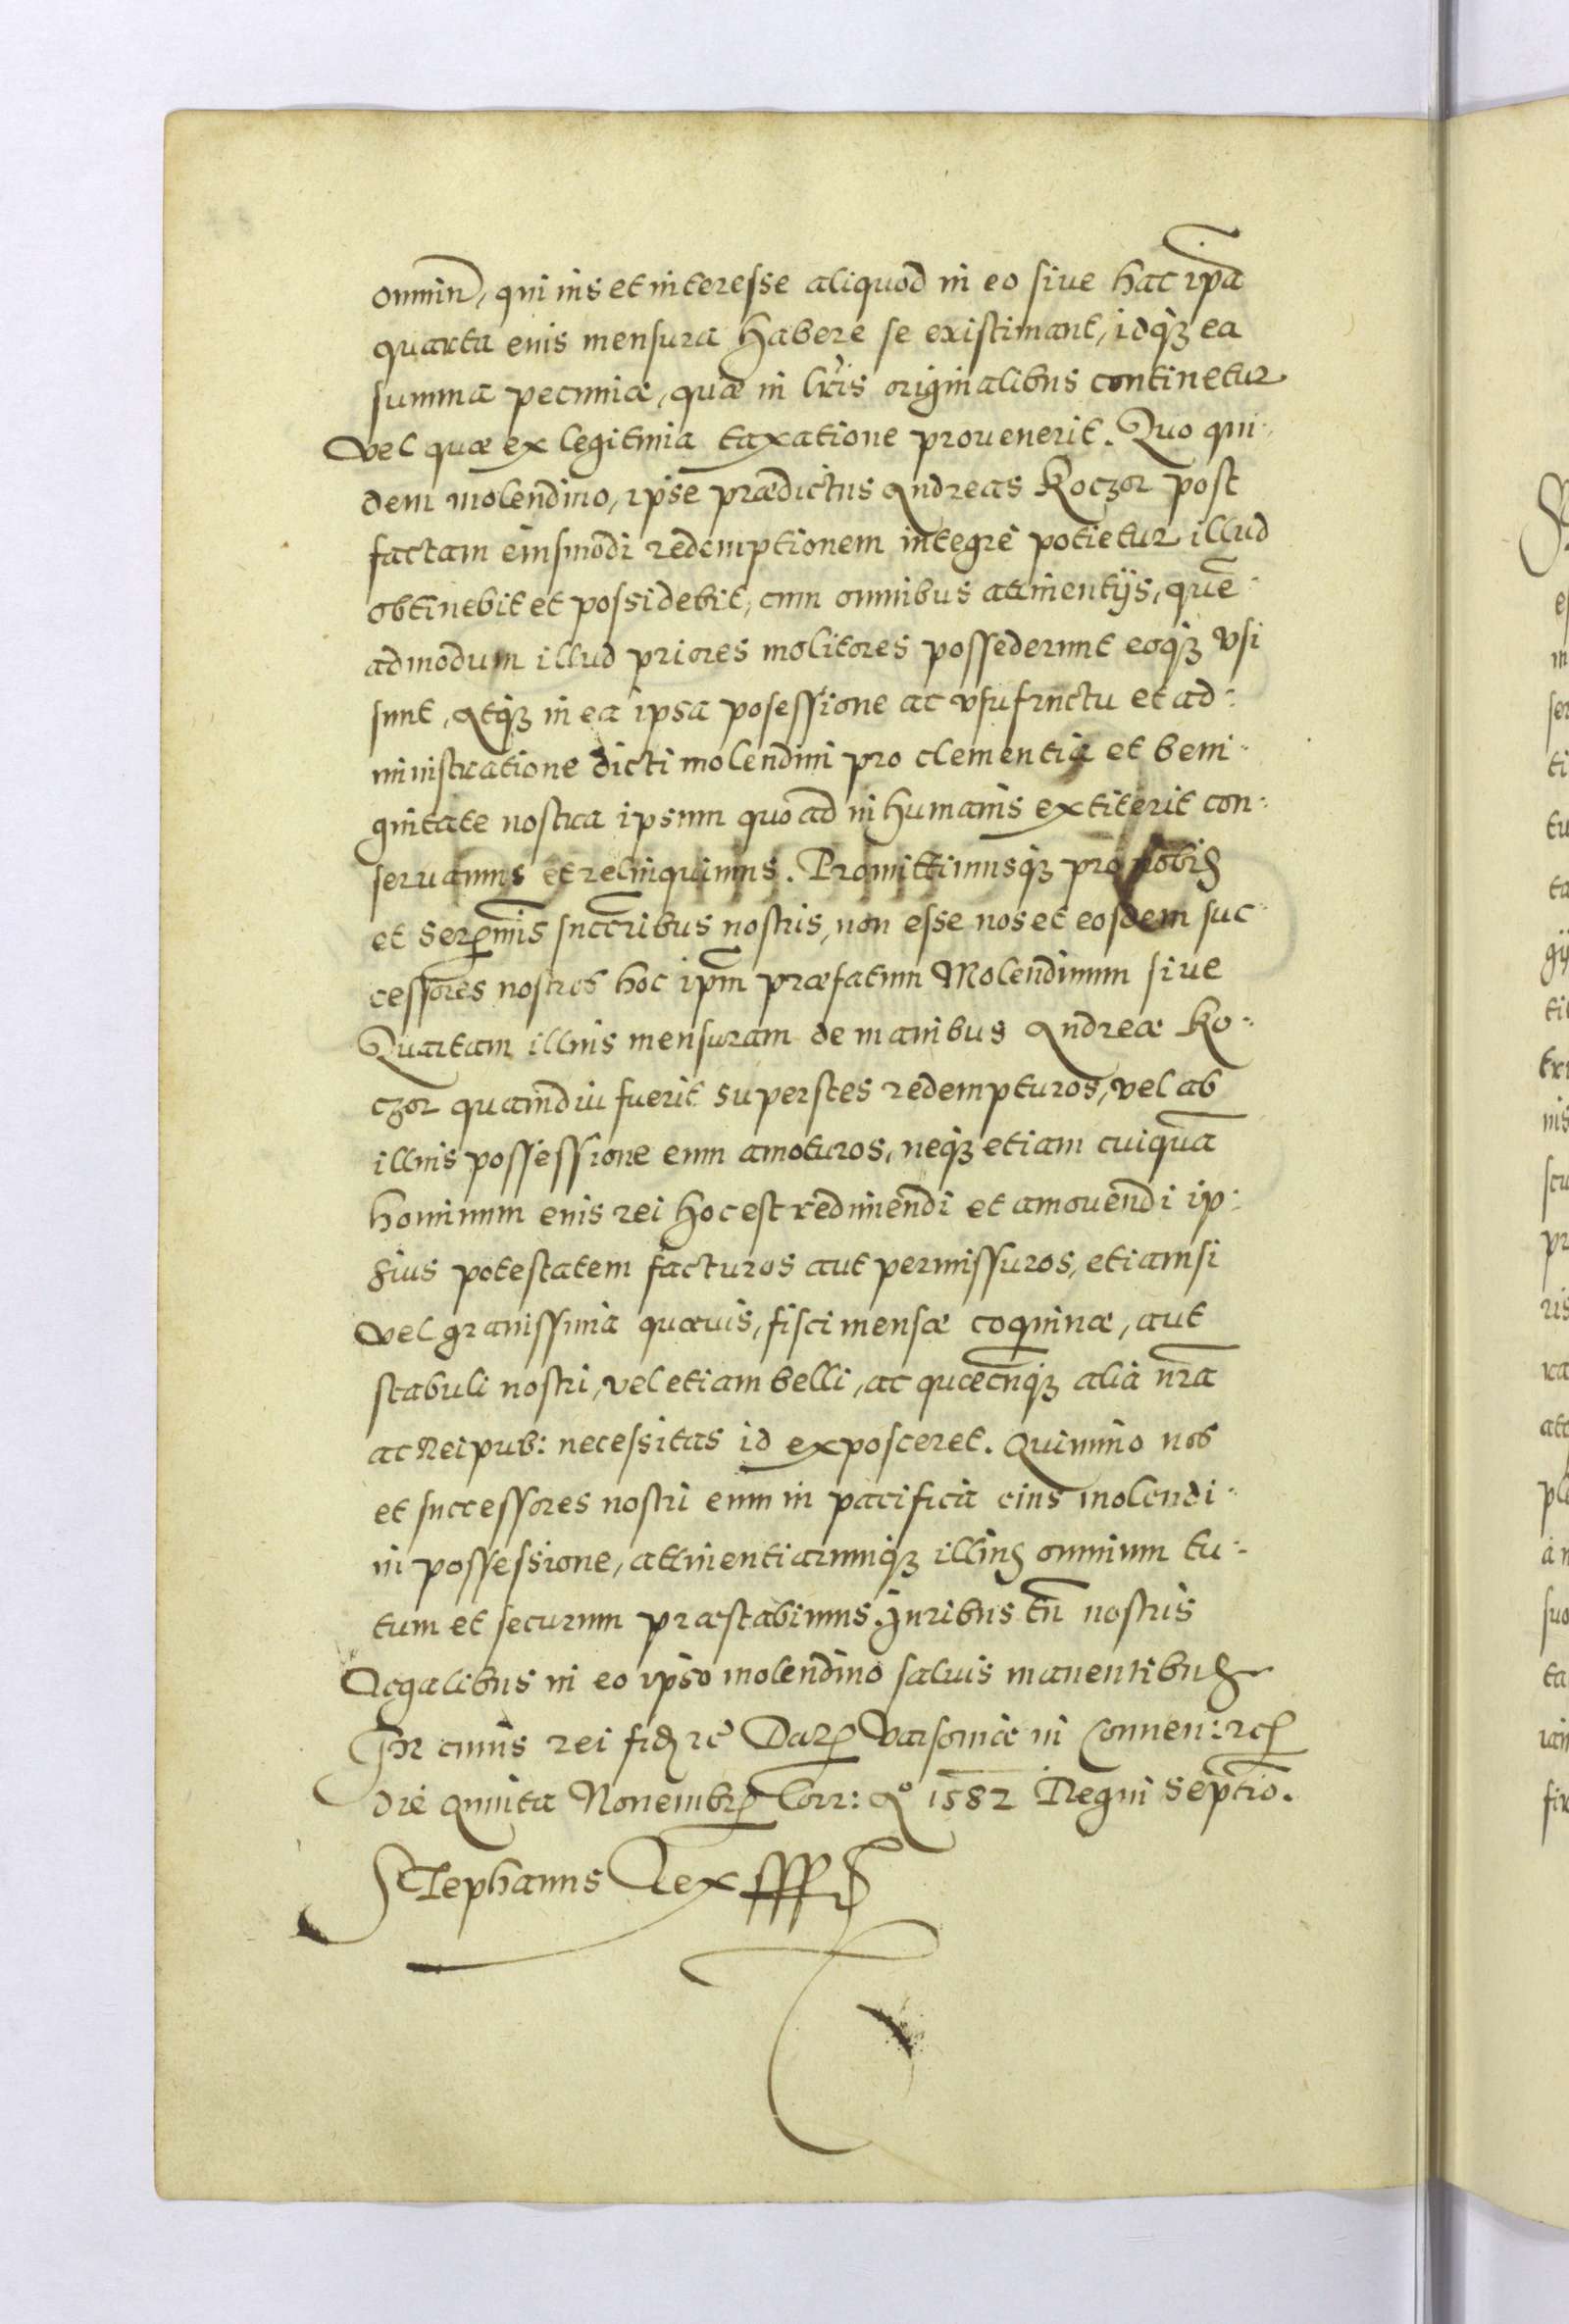 omniũ, qui ius et interesse aliquod in eo siue hac ip̃a
quarta eius mensura habere se existimant, idq́ꝫ ea
summa pecuniæ, quæ in lr̃is originalibus continetur
vel quæ ex legitima taxatione prouenerit. Quo qui-
dem molendino, ipse prædictus Andreas Koczor post
factam eiusmodi redemptionem integrè potietur illud
obtinebit et possidebit, cum omnibus attinentijs, quẽ-
admodum illud priores molitores possederunt eoq́ꝫ vsi
sunt, Atq́ꝫ in ea ipsa posessione ac vsufructu et ad-
ministratione dicti molendini pro clementia et beni-
gnitate nostra ipsum quoad in humanis extiterit con-
seruamus et relinquimus. Promittimusq́ꝫ pro nobis
et Serẽmis succr̃ibus nostris, non esse nos et eosdem suc-
cessores nostros hoc ip̃m præfatum Molendinum siue
Quartam illius mensuram de manibus Andreæ Ko-
czor quamdiu fuerit superstes redempturos, vel ab
illius possessione eum amoturos, neq́ꝫ etiam cuiquã
hominum eius rei hoc est redimendi et amouendi ip-
sius potestatem facturos aut permissuros, etiamsi
vel grauissima quæuis, fisci mensæ coquinæ, aut
stabuli nostri, vel etiam belli, ac quæcũq́ꝫ alia nr̃a
ac Reipub: necessitas id exposceret. Quinimo nos
et successores nostri eum in pacifica eius molendi-
ni possessione, attinentiarumq́ꝫ illius omnium tu-
tum et securum præstabimus. Iuribus tñ nostris
Regalibus in eo ipso molendino saluis manentibus
In cuius rei fid rc̃ Dat Varsouiæ in Conuen: rc
die Quinta Nouembr̃ Corr: Aº 1582 Regni Septio.
Stephanus Rex